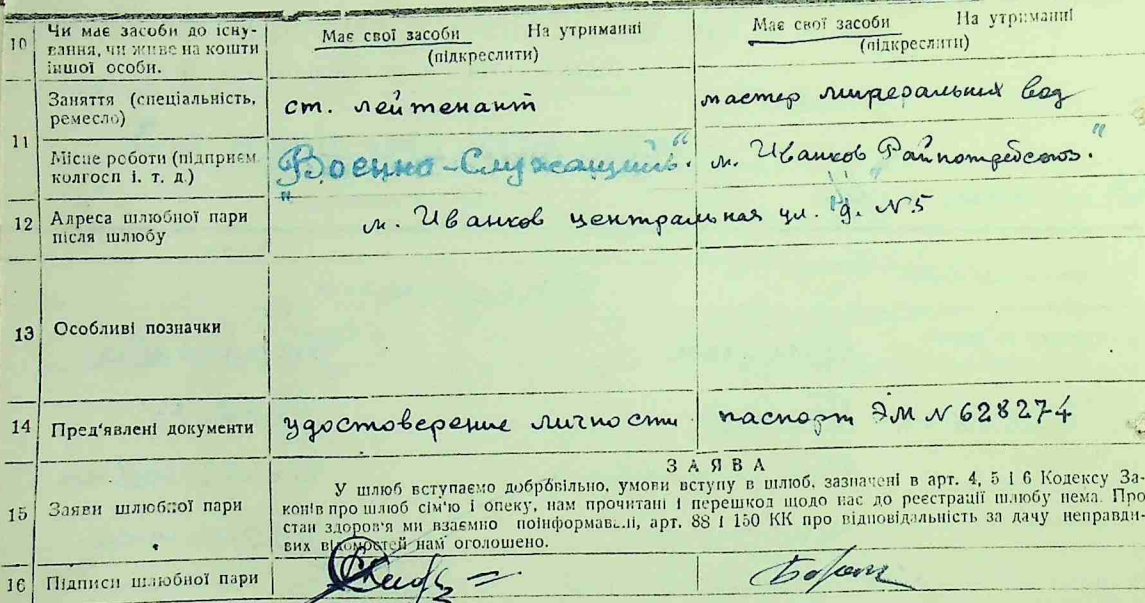 10 Чи має засоби до існування, чи живе на кошти іншої особи. Має свої засоби На утриманні (підкреслити) Має свої засоби На утриманні (підкреслити)
11 Заняття (спеціальність, ремесло) ст. лейтенант мастер минеральных вод
Місце роботи (підприєм. колгосп і. т. д.) "Военно-Служащий". м. Иванков Райпотребсоюз."
12 Адреса шлюбної пари після шлюбу м. Иванков центральная ул. д. №5
13 Особливі позначки
14 Пред'явлені документи удостоверение личности паспорт ЭМ N 628274
15 Заяви шлюбної пари
ЗАЯВА
У шлюб вступаємо добровільно, умови вступу в шлюб, зазначені в арт. 4, 5 і 6 Кодексу За-
конів про шлюб сім'ю і опеку, нам прочитані і перешкод щодо нас до реєстрації шлюбу нема. Про
стан здоров'я ми взаємно поінформавалі, арт. 88 і 150 КК про відповідальність за дачу неправди-
вих відомостей нам оголошено.
16 Підписи шлюбної пари